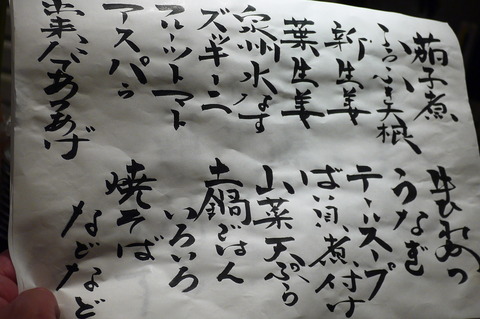 茄子煮
大根
新生姜
葉生姜
泉州水なす
ズッキーニ
フルーツトマト
アスパラ
うなぎ
テールスープ
ばい貝煮付け
山菜天ぷら
土鍋ごはん
いろいろ
焼そば
などなど